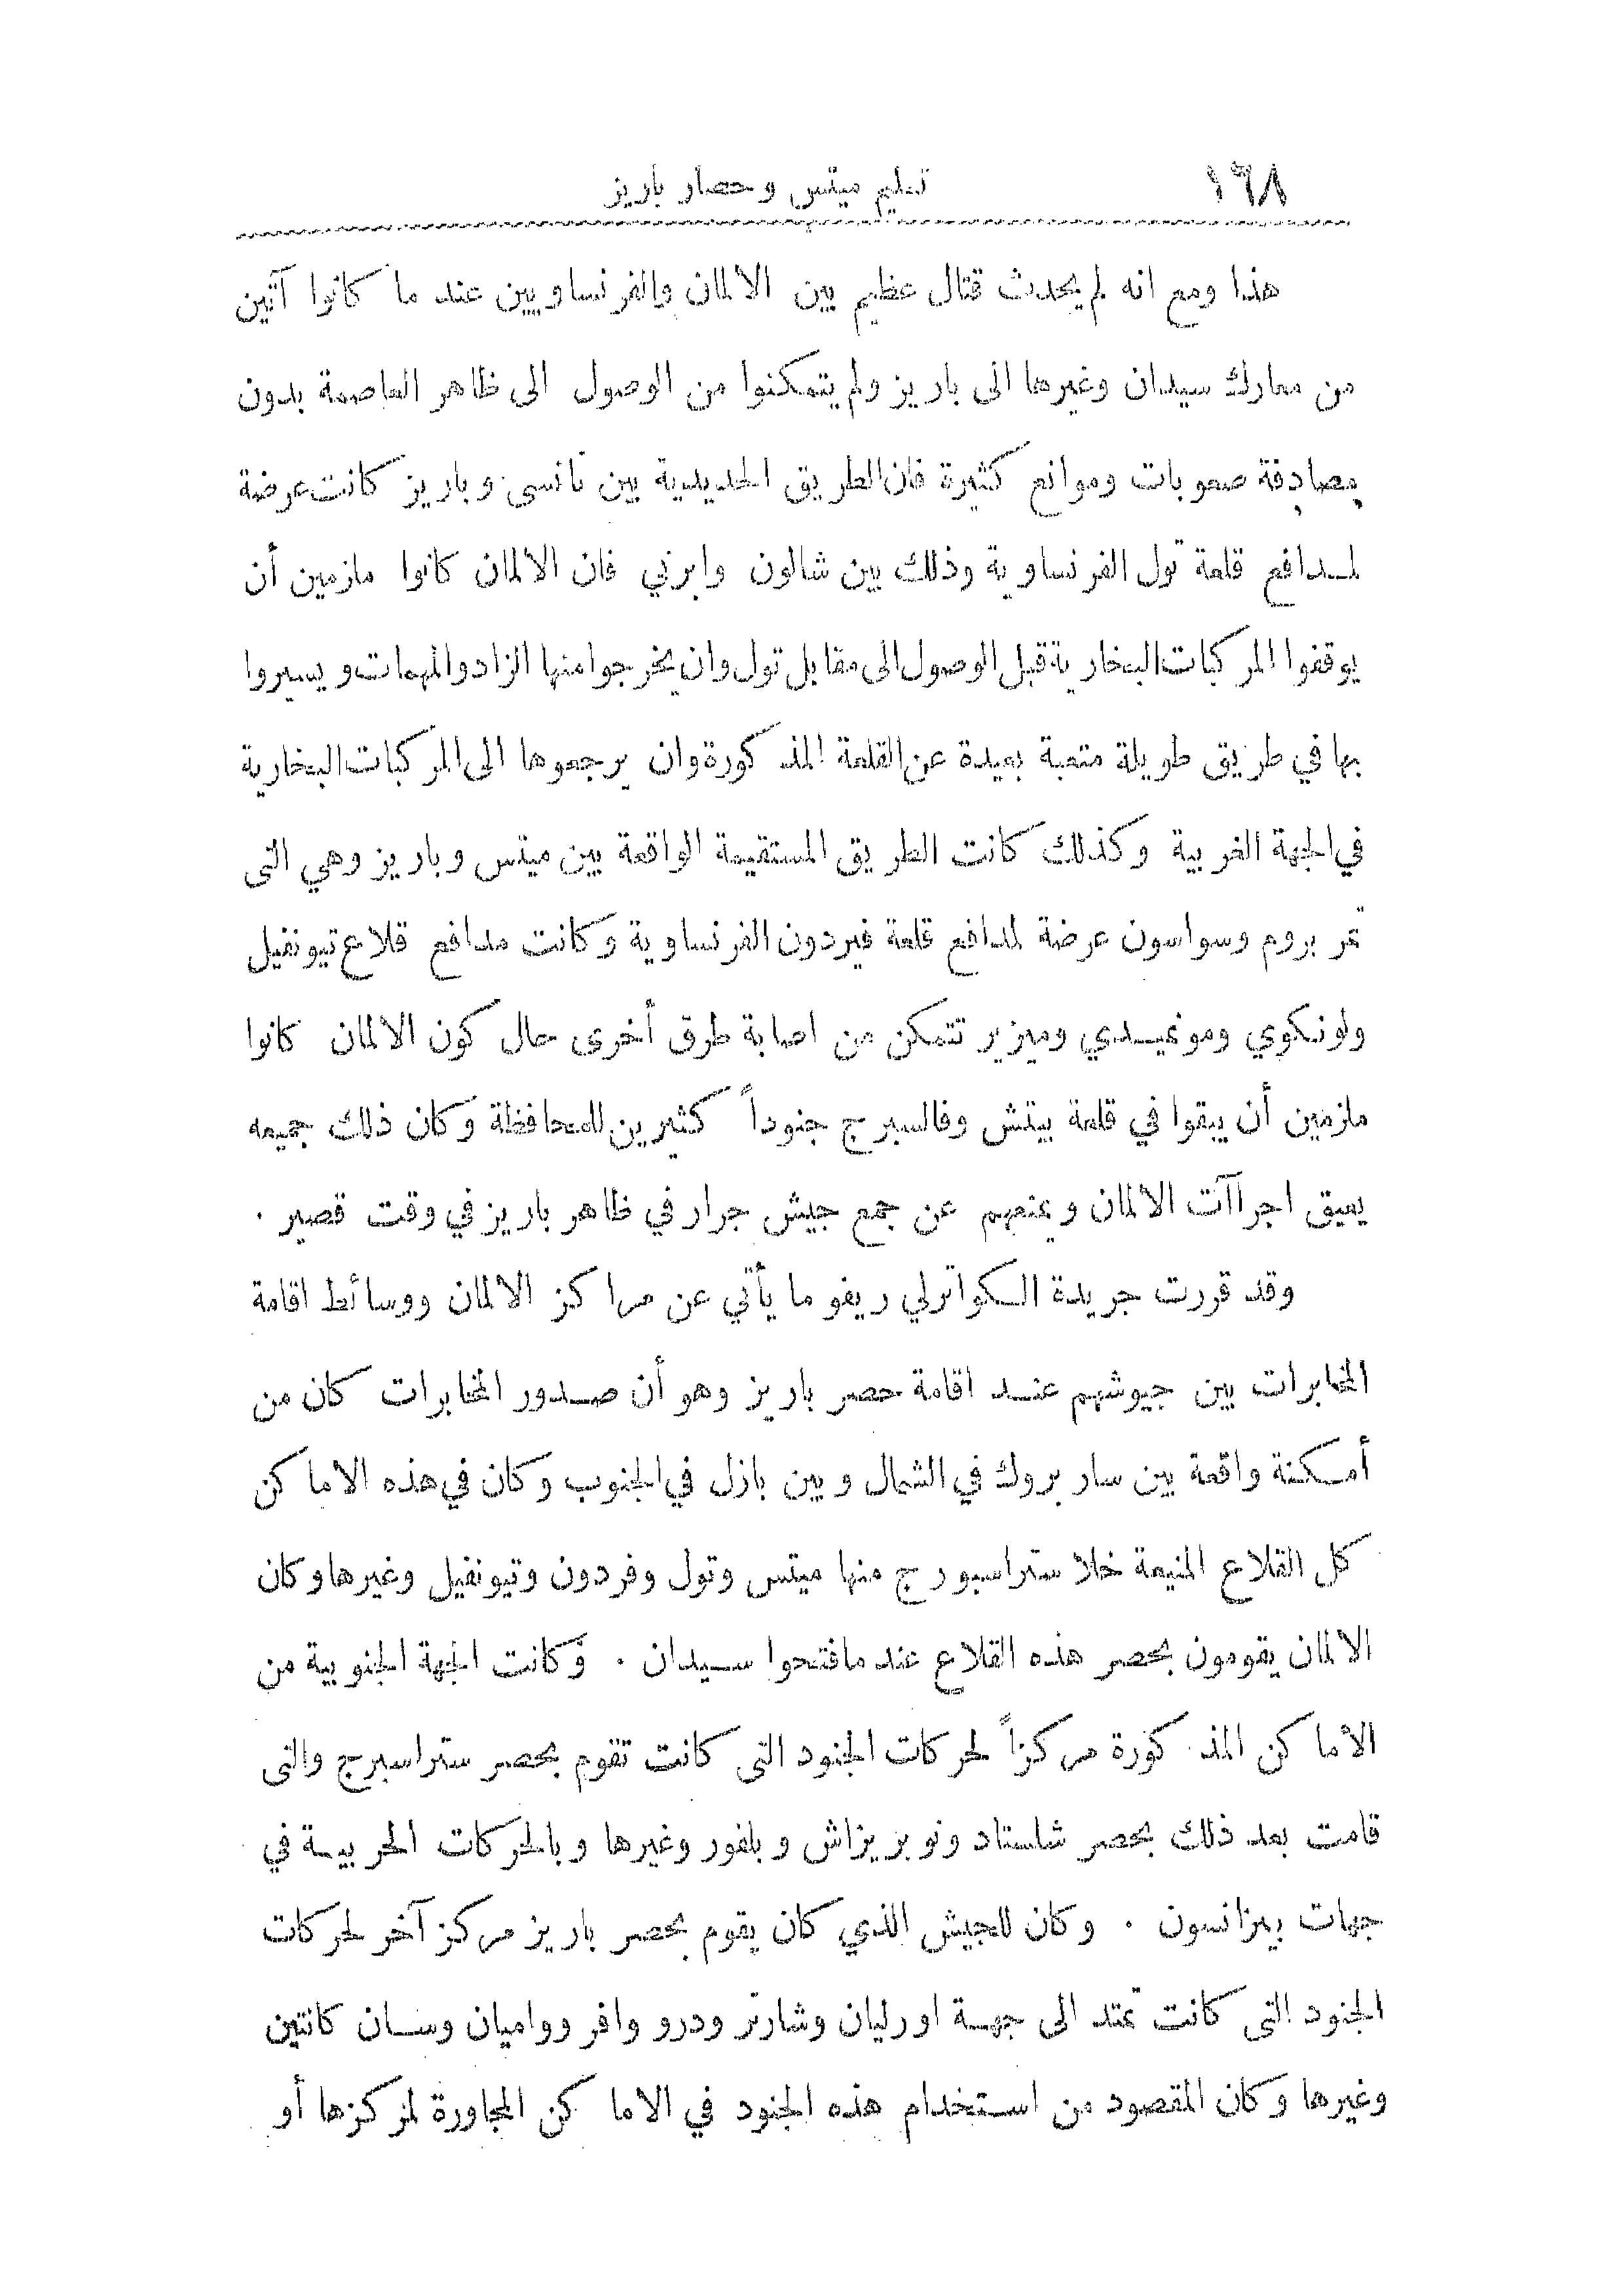 ١٦٨
تسليم ميتس وحصار باريز
هذا ومع انه لم يحدث قتال عظيم بين الالمان والفرنساويين عند ما كانوا آتين
من معارك سيدان وغيرها الى باريز ولم يتمكنوا من الوصول الى ظاهر العاصمة بدون
مصادفة صعوبات وموانع كثيرة فان الطريق الحديدية بين نانسي وباريز كانت عرضة
لمدافع قلعة تول الفرنساوية وذلك بين شالون وابرني فان الالمان كانوا ملزمين أن
يوقفوا المركبات البخارية قبل الوصول الى مقابل تول وان يخرجوا منها الزاد والمهمات ويسيروا
بها في طريق طويلة متعبة بعيدة عن القلعة المذكورة وان يرجعوها الى المركبات البخارية
في الجهة الغربية وكذلك كانت الطريق المستقيمة الواقعة بين ميتس وباريز وهي التى
تمر بروم وسواسون عرضة لمدافع قلعة فيردون الفرنساوية وكانت مدافع قلاع تيونفيل
ولونكوي ومونميدي وميزير تتمكن من اصابة طرق أخرى حال كون الالمان كانوا
ملزمين أن يبقوا في قلعة بيتش وفالسبرج جنوداً كثيرين للمحافظة وكان ذلك جميعه
يعيق اجراآت الالمان ويمنعهم عن جمع جيش جرار في ظاهر باريز في وقت قصير .
وقد قررت جريدة الكواترلي ريفو ما يأتي عن مراكز الالمان ووسائط اقامة
المخابرات بين جيوشهم عند اقامة حصر باريز وهو أن صدور المخابرات كان من
أمكنة واقعة بين سار بروك في الشمال وبين بازل في الجنوب وكان في هذه الاماكن
كل القلاع المنيعة خلا ستراسبورج منها ميتس وتول وفردون وتيونفيل وغيرها وكان
الالمان يقومون بحصر هذه القلاع عند ما فتحوا سيدان . وكانت الجهة الجنوبية من
الاماكن المذكورة مركزاً لحركات الجنود التى كانت تقوم بحصر ستراسبرج والتى
قامت بعد ذلك بحصر شلستاد ونوبريزاش وبلفور وغيرها وبالحركات الحربية في
جهات بيزانسون . وكان للجيش الذي كان يقوم بحصر باريز مركز آخر لحركات
الجنود التى كانت تمتد الى جهة اورليان وشارتر ودرو وافر وواميان وسان كانتين
وغيرها وكان المقصود من استخدام هذه الجنود في الاماكن المجاورة لمركزها أو